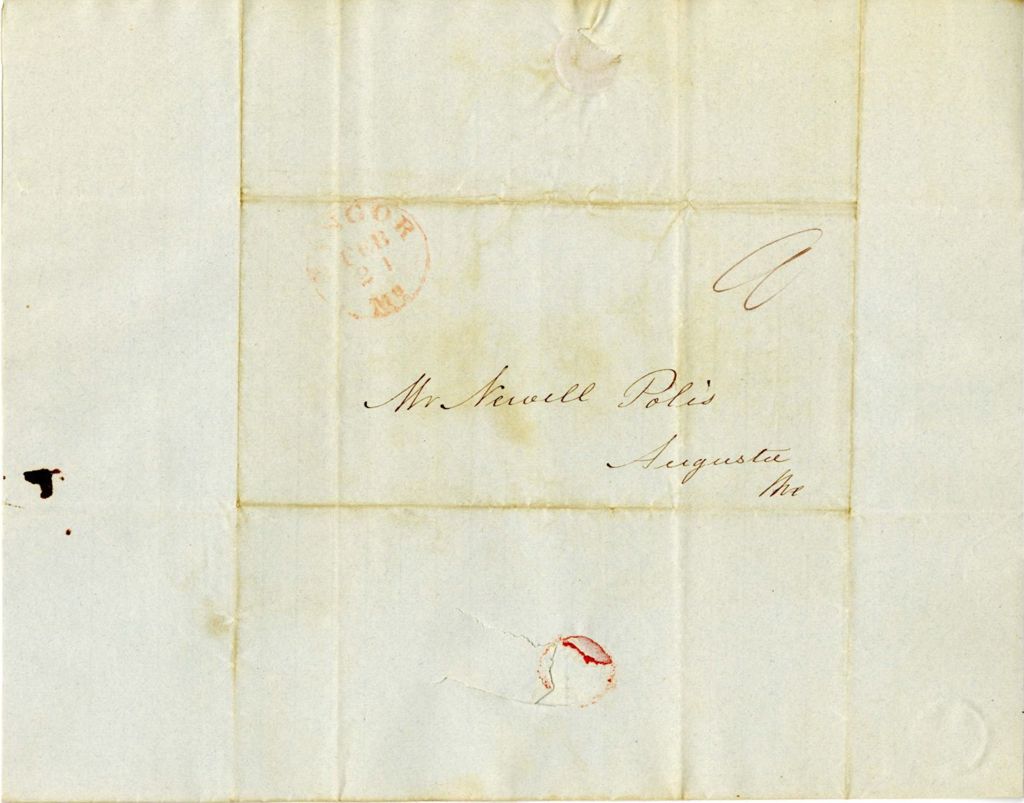 BANGOR
FEB
21
Me
Mr Newell Polis
Augusta
Me